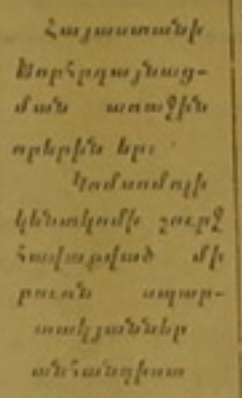 Հայաստանի
Խորհրդայնաց-
ման առաջին
օրերին էր։
Կամսամոլի
կենտկոմի շուրջ
հավաքված մի
բուռն սպար-
տակյաններ
անհանգիստ